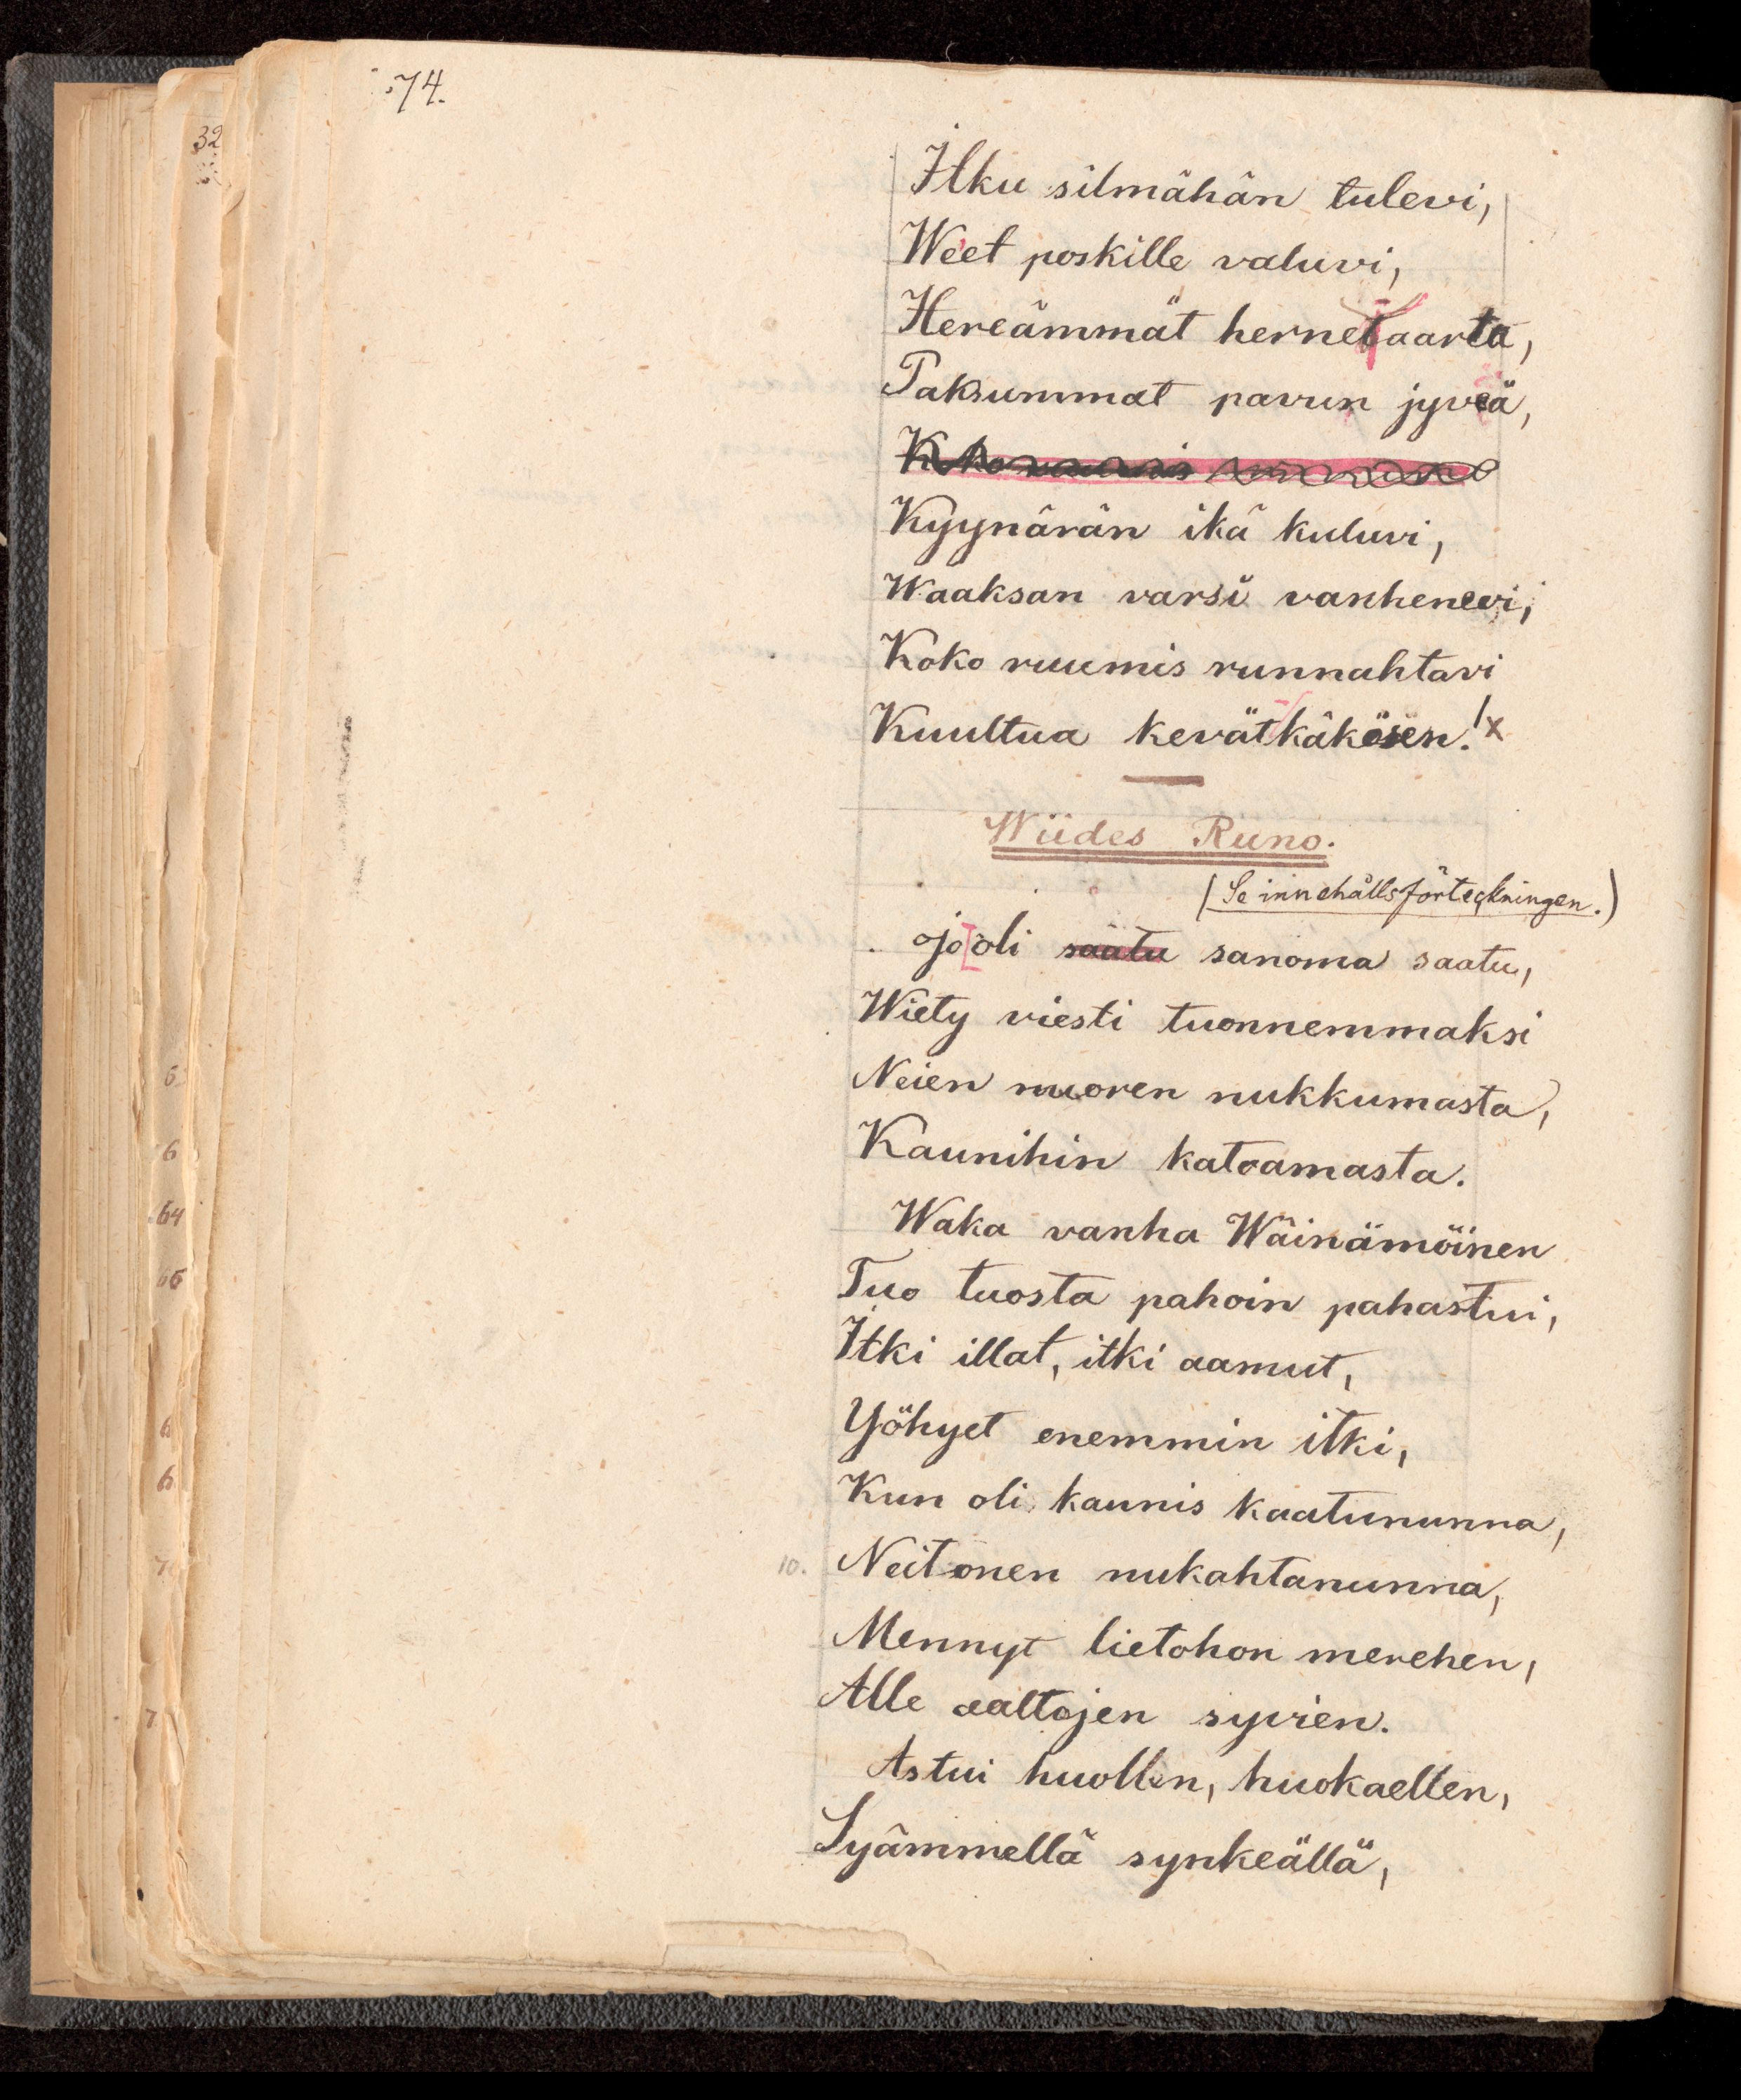 74.
32
Itku silmähän tulevi,
Weet poskille valuvi,
Hereämmät hernetaarta,
Paksummat pavun jyveä,
Kyynärän ikä kuluvi,
Waaksan varsi vanhenevi,
Koko ruumis runnahtavi
Kuultua kevätkäkösen! x
Wiides Runo.
(Se innehållsförteckningen.)
Jo oli saatu sanoma saatu,
Wiety viesti tuonnemmaksi
Neien nuoren nukkumasta,
Kaunihin katoamasta.
Waka vanha Wäinämöinen
Tuo tuosta pahoin pahastui,
Itki illat, itki aamut,
Yöhyet enemmin itki,
Kun oli kaunis kaatununna,
10. Neitonen nukahtanunna,
Mennyt lietohon merehen,
Alle aaltojen syvien.
Astui huollen, huokaellen,
Syämmellä synkeällä,
6
6
64
66
6
6
7
7